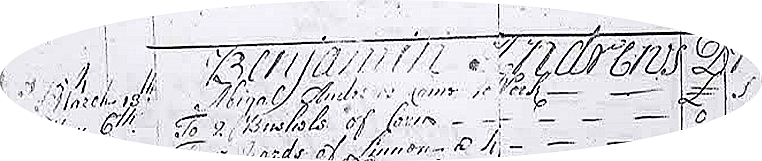 Benjamin Andrews D
March 13th Abigal Andrews came to Work £ s
6th To 2 Bushels of Corn 0
yards of Linnon